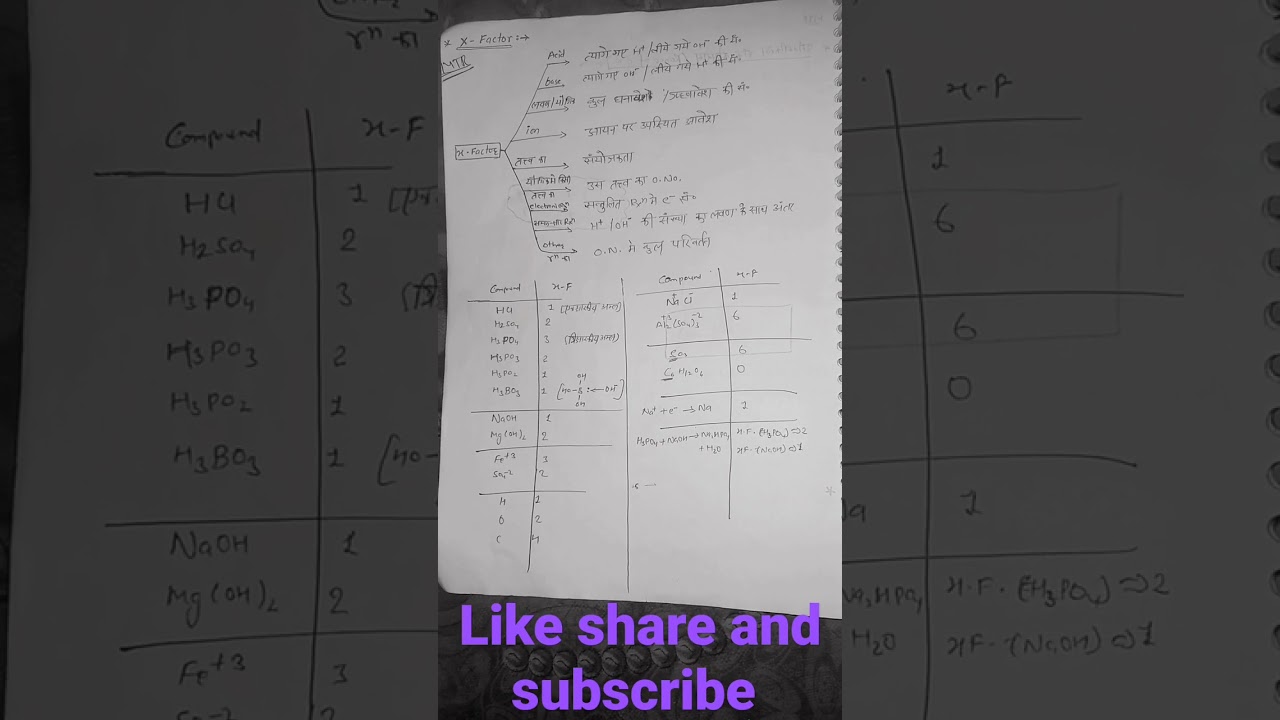 * X-Factor:→
MTR
Acid त्यागे गए H⁺/लीये गये OH⁻ की सं०
base त्यागे गए OH⁻/लीये गये H⁺ की सं०
कुल /ऋणावेश की सं०
ion आयन पर उपस्थित आवेश
x-Factor
तत्व का संयोजकता
उस तत्व का O.No.
तत्व का
सन्तुलित Rxn मे e⁻ सं०
H⁺/OH⁻ की संख्या का लवण के साथ अंतर
other rⁿ का O.N. मे कुल परिवर्तन
Compound x-F
HCl 1
H₂SO₄ 2
H₃PO₄ 3
H₃PO₃ 2
H₃PO₂ 1
H₃BO₃ 1 [HO-B:←OH⁻]
OH
OH
NaOH 1
Mg(OH)₂ 2
Fe⁺³ 3
SO₄⁻² 2
H 1
O 2
C 4
Compound x-F
NaCl 1
Al₂⁺³(SO₄)₃⁻² 6
SO₃ 6
C₆H₁₂O₆ 0
Na⁺ + e⁻ → Na 1
H₃PO₄ + NaOH → Na₂HPO₄ x.F.(H₃PO₄) ⇒ 2
+ H₂O x.F.(NaOH) ⇒ 1
Like share and
subscribe